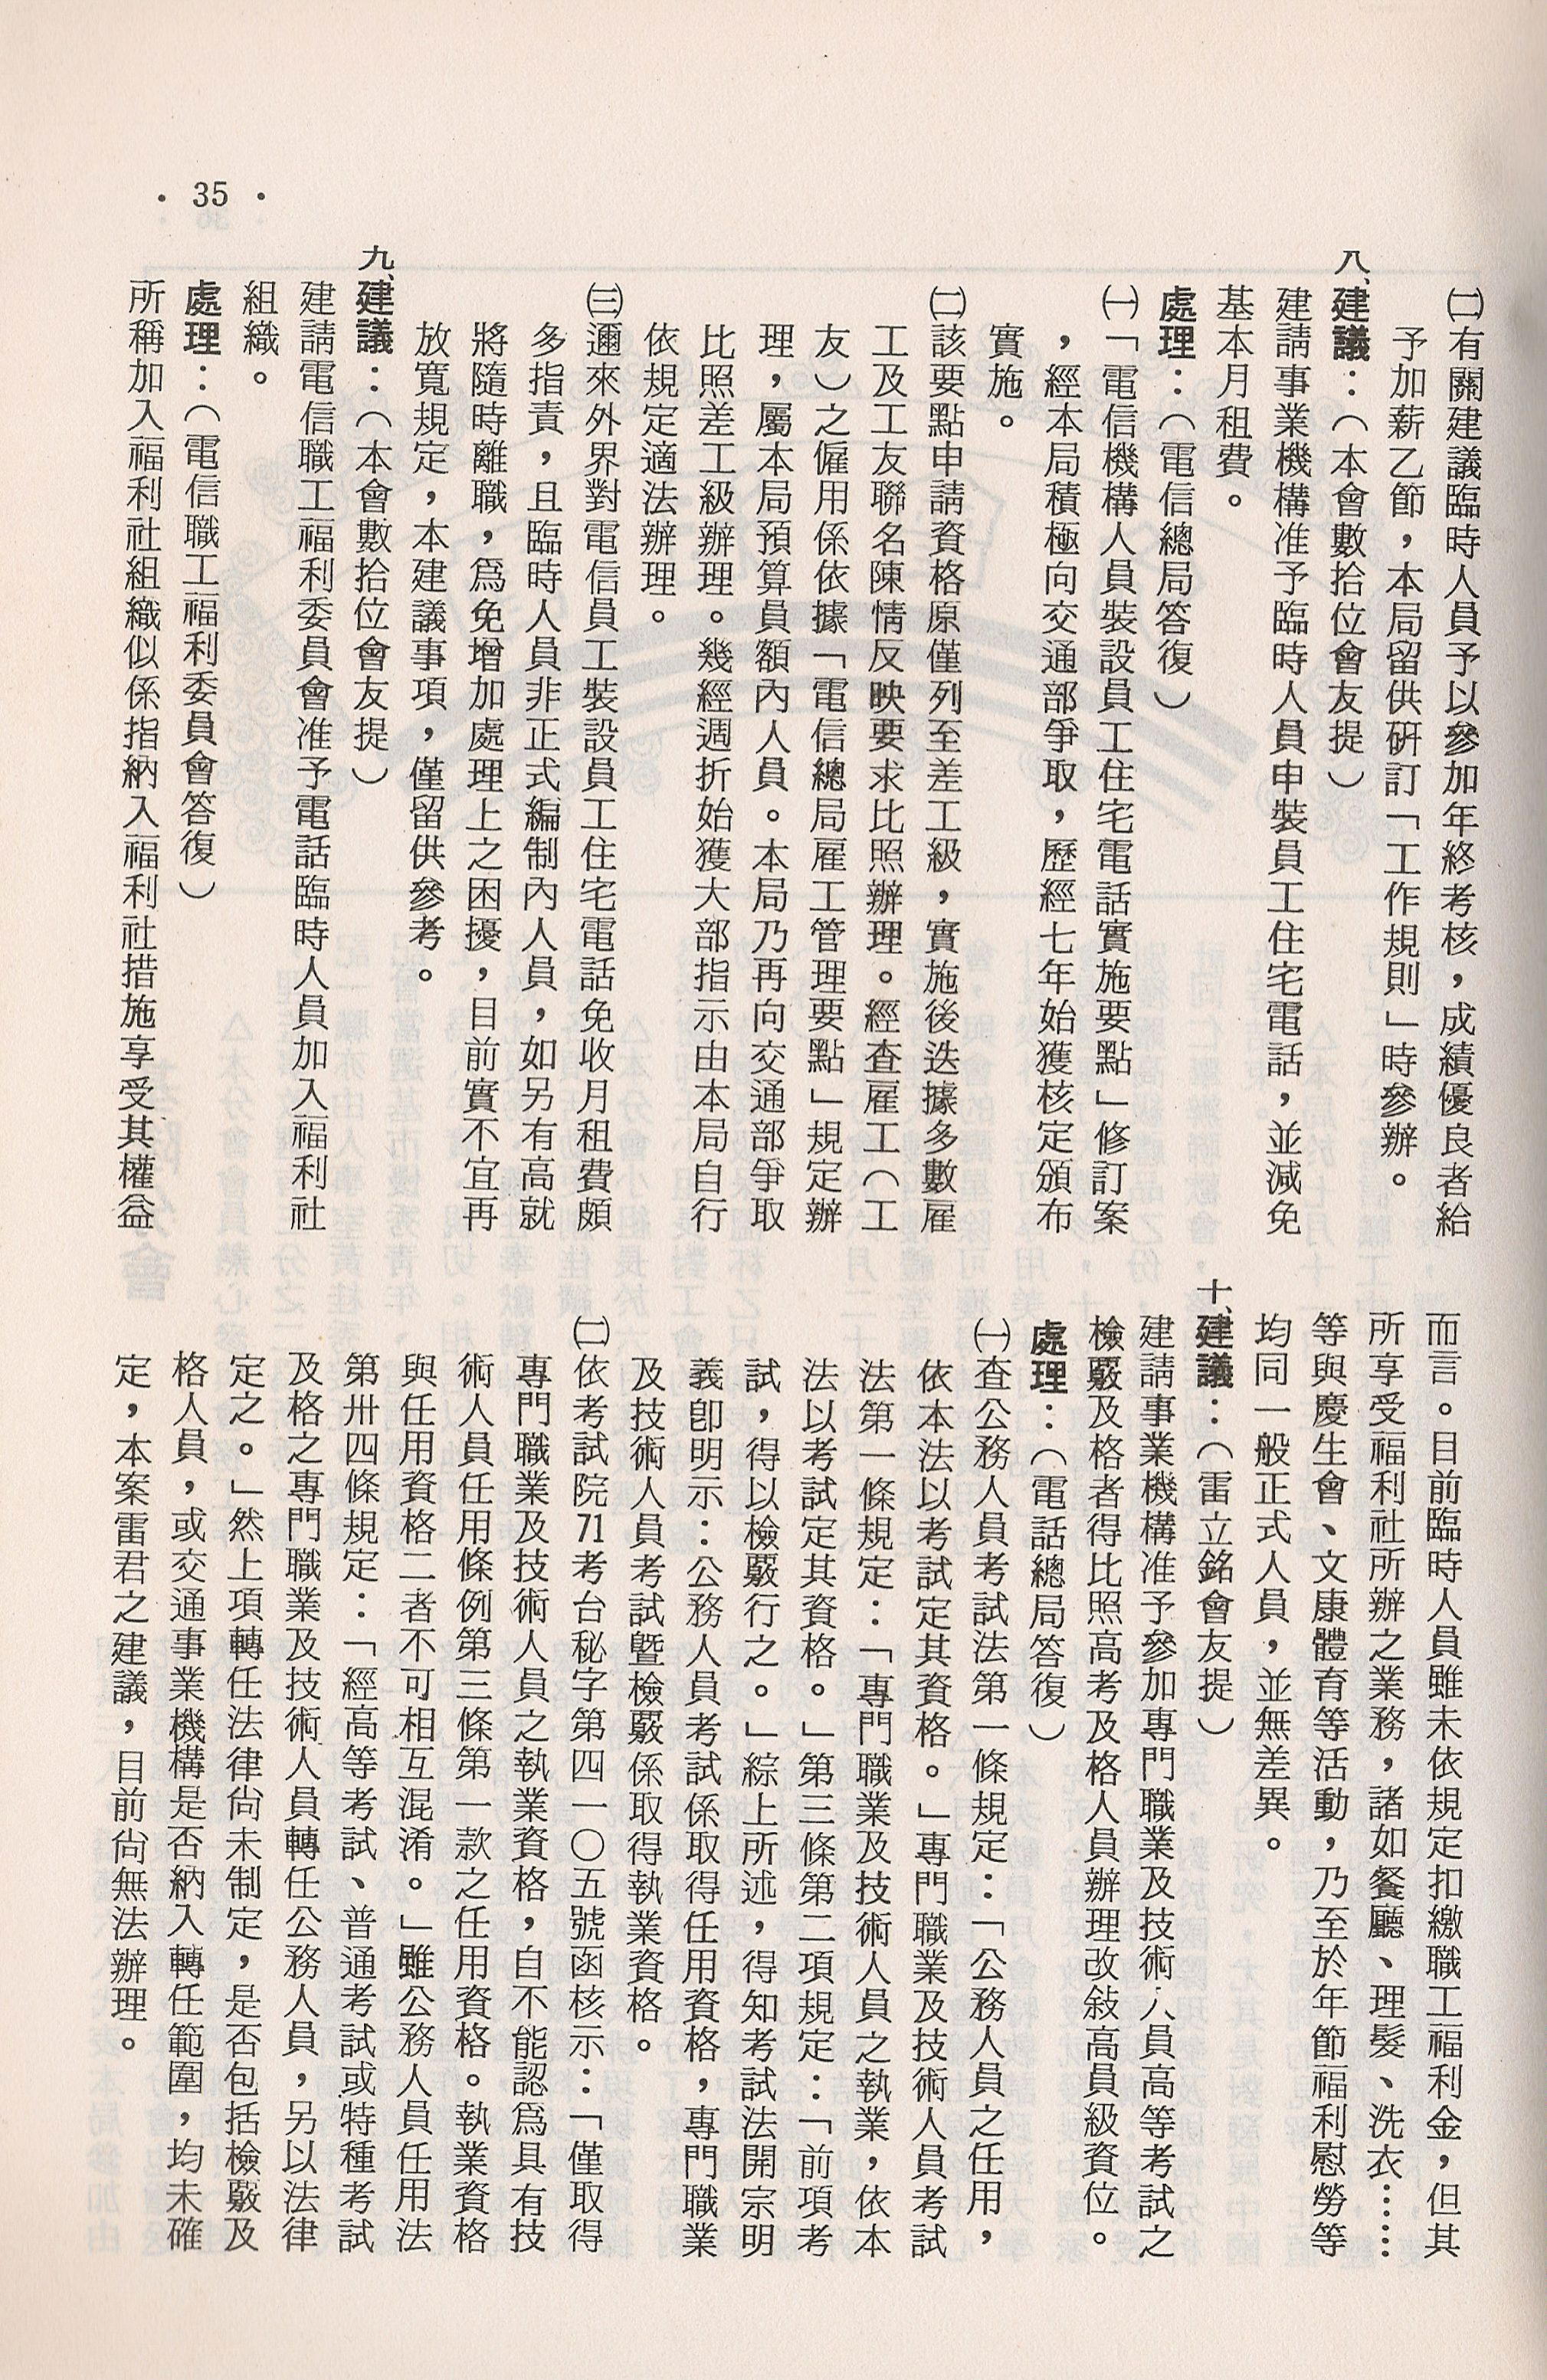 • 35 •
㈡有關建議臨時人員予以參加年終考核，成績優良者給
予加薪乙節，本局留供研訂「工作規則」時參辦。
八、建議：（本會數拾位會友提）
建請事業機構准予臨時人員申裝員工住宅電話，並減免
基本月租費。
處理：（電信總局答復）
㈠「電信機構人員裝設員工住宅電話實施要點」修訂案
，經本局積極向交通部爭取，歷經七年始獲核定頒布
實施。
㈡該要點申請資格原僅列至差工級，實施後迭據多數雇
工及工友聯名陳情反映要求比照辦理。經查雇工（工
友）之僱用係依據「電信總局雇工管理要點」規定辦
理，屬本局預算員額內人員。本局乃再向交通部爭取
比照差工級辦理。幾經週折始獲大部指示由本局自行
依規定適法辦理。
㈢邇來外界對電信員工裝設員工住宅電話免收月租費頗
多指責，且臨時人員非正式編制內人員，如另有高就
將隨時離職，爲免增加處理上之困擾，目前實不宜再
放寬規定，本建議事項，僅留供參考。
九、建議：（本會數拾位會友提）
建請電信職工福利委員會准予電話臨時人員加入福利社
組織。
處理：（電信職工福利委員會答復）
所稱加入福利社組織似係指納入福利社措施享受其權益
而言。目前臨時人員雖未依規定扣繳職工福利金，但其
所享受福利社所辦之業務，諸如餐廳、理髮、洗衣……
等與慶生會、文康體育等活動，乃至於年節福利慰勞等
均同一般正式人員，並無差異。
十、建議：（雷立銘會友提）
建請事業機構准予參加專門職業及技術人員高等考試之
檢覈及格者得比照高考及格人員辦理改敍高員級資位。
處理：（電話總局答復）
㈠查公務人員考試法第一條規定：「公務人員之任用，
依本法以考試定其資格。」專門職業及技術人員考試
法第一條規定：「專門職業及技術人員之執業，依本
法以考試定其資格。」第三條第二項規定：「前項考
試，得以檢覈行之。」綜上所述，得知考試法開宗明
義卽明示：公務人員考試係取得任用資格，專門職業
及技術人員考試曁檢覈係取得執業資格。
㈡依考試院71考台秘字第四一〇五號函核示：「僅取得
專門職業及技術人員之執業資格，自不能認爲具有技
術人員任用條例第三條第一款之任用資格。執業資格
與任用資格二者不可相互混淆。」雖公務人員任用法
第卅四條規定：「經高等考試、普通考試或特種考試
及格之專門職業及技術人員轉任公務人員，另以法律
定之。」然上項轉任法律尙未制定，是否包括檢覈及
格人員，或交通事業機構是否納入轉任範圍，均未確
定，本案雷君之建議，目前尙無法辦理。